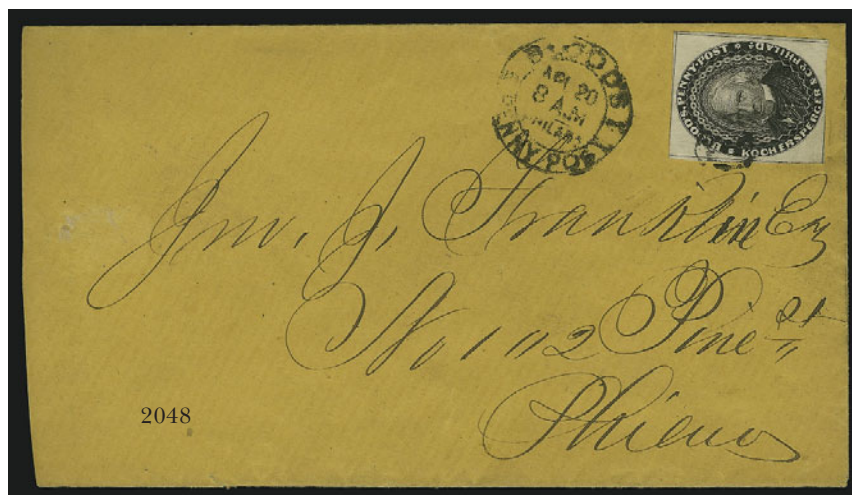 BLOOD'S PENNY POST
APR 20
8 AM
PHILADA
BLOOD'S PENNY POST • PHILADA •
KOCHERSPERGER & CO.
Jno. J. Franklin Esq
No 102 Pine St
Philada
2048